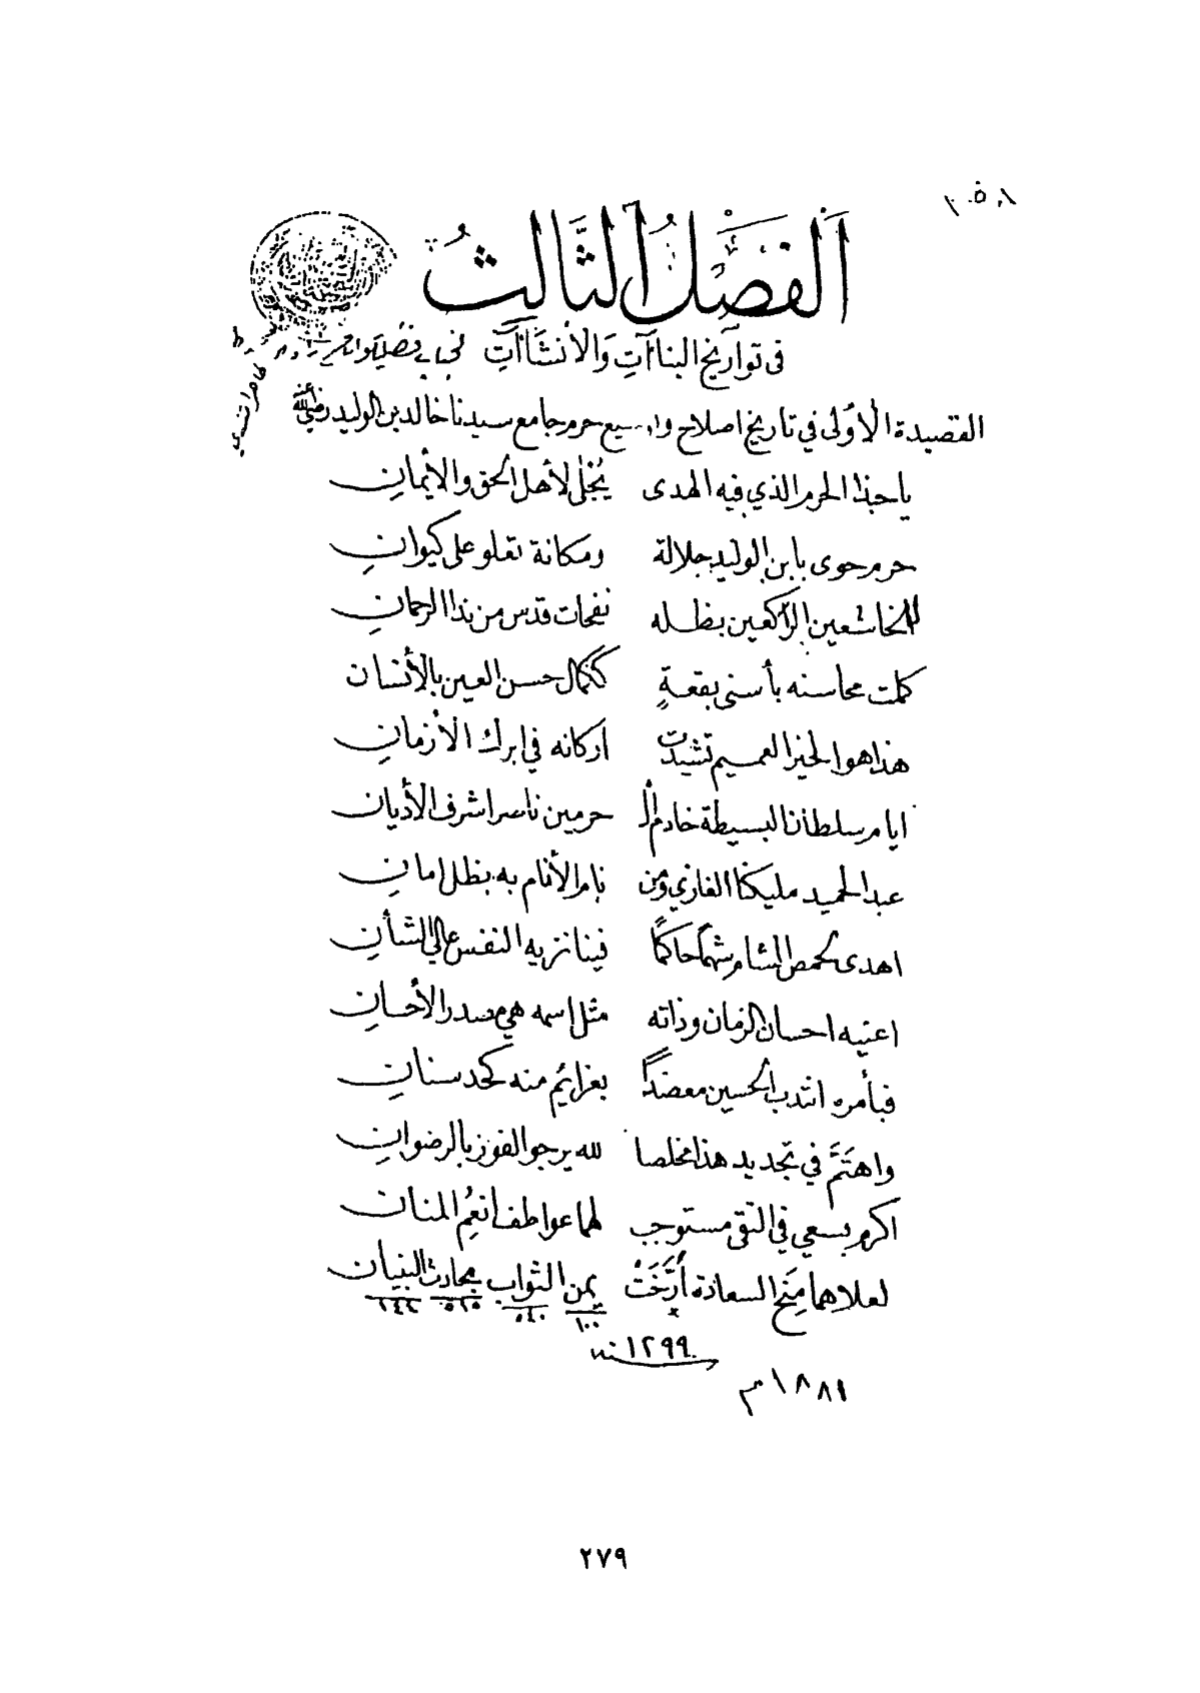 الفَصْلُ الثَّالِثُ
فى تواريخ البناآتِ وَالأنشَاآتِ
القصيدة الأولى في تاريخ اصلاح وتوسيع حرم جامع سيدنا خالد بن الوليد رضي الله عنه
يا حبذا الحرم الذي فيه الهدى يُجْلى لأهل الحق والأيمانِ
حرم حوى بابن الوليد جلالة ومكانة تعلو على كيوانِ
للخاشعين الراكعين بظله نفحات قدس من ندا الرحمانِ
كملت محاسنه بأسنى بقعةٍ ككمال حسن العين بالأنسان
هذا هو الخير العميم تشيدت اركانه في ابرك الأزمانِ
ايام سلطان البسيطة خادم الْ حرمين ناصر اشرف الأديان
عبد الحميد مليكنا الغازي ومن نام الأنام به بظل امانِ
اهدى لحمص الشام شهمًا حاكمًا فينا نزيه النفس عالي الشأنِ
اعنيه احسان الزمان وذاته مثل اسمه هي مصدر الأحسانِ
فبأمره انتدب الحسين معضدًا بعزائم منه كحد سنانِ
واهتَمَّ في تجديد هذا مخلصا لله يرجو الفوز بالرضوانِ
اكرم بسعي في التقى مستوجب لهما عواطف انعُم المنان
لعلاهما مِنَح السعادة أرَّخَتْ يمن الثواب بحادث البنيان
١٠٠ ٥٤٠ ٥١٥ ١٤٤
١٢٩٩
١٨٨١م
٢٧٩